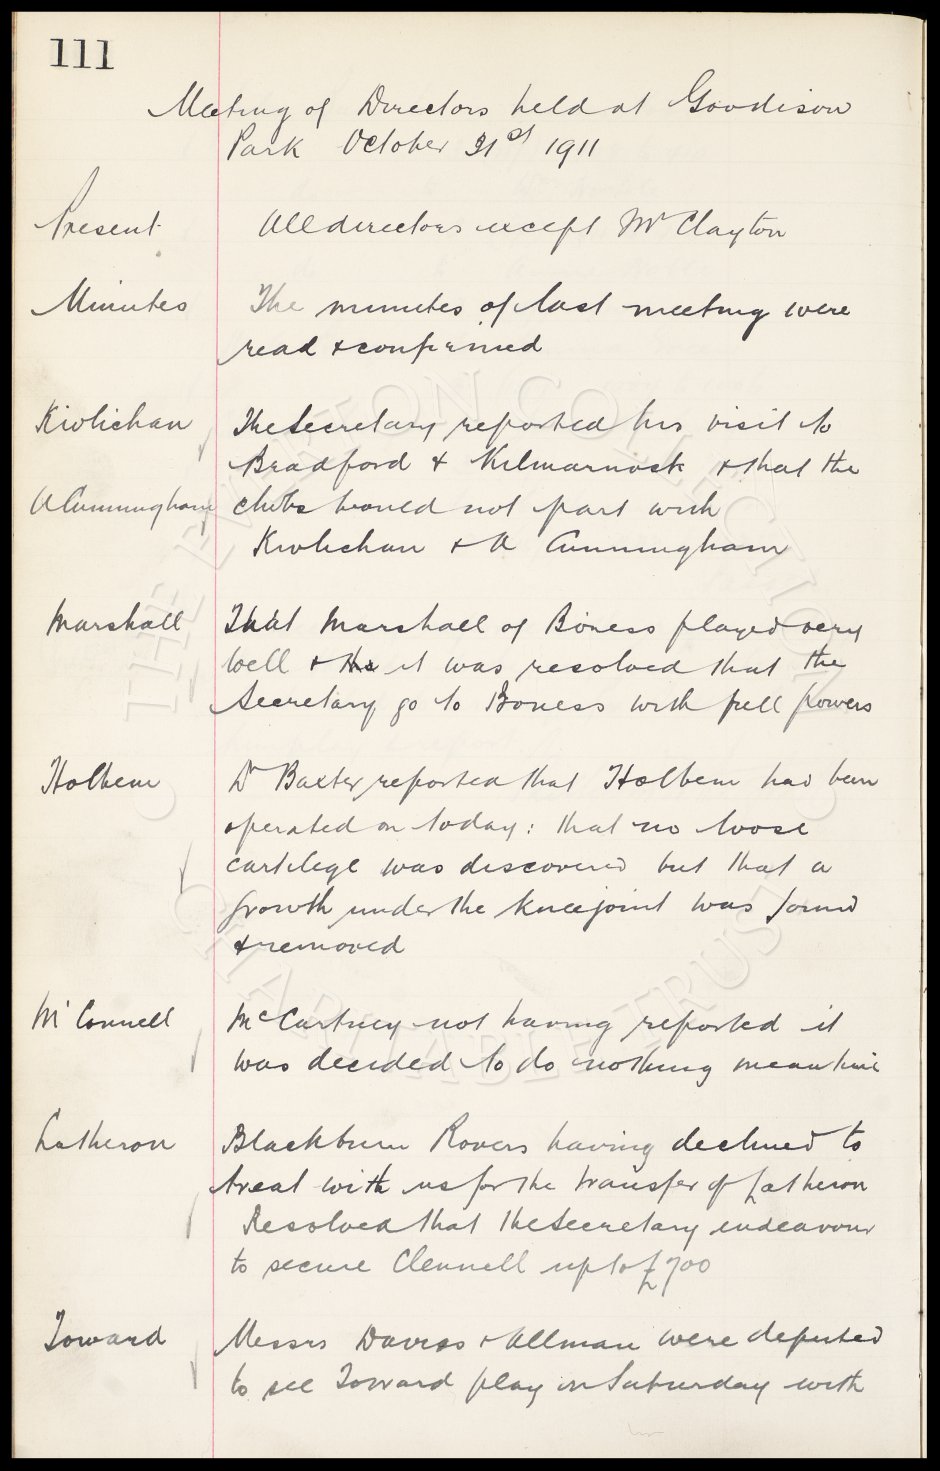 111
Meeting of Directors held at Goodison
Park October 31st 1911
Present All directors except Mr Clayton
Minutes The minutes of last meeting were
read & confirmed
Kirlichan The Secretary reported his visit to
Bradford & Kilmarnock & that the
A Cunningham clubs would not part with
Kirlichan & A Cunningham
Marshall That Marshall of Boness played very
well & it was resolved that the
Secretary go to Boness with full powers
Holbem Dr Baxter reported that Holbem had been
operated on today: that no loose
cartilege was discovered but that a
growth under the knee joint was found
& removed
McConnell McCartney not having reported it
was decided to do nothing meantime
Latheron Blackburn Rovers having declined to
treat with us for the transfer of Latheron
Resolved that the Secretary endeavour
to secure Clennell up to £700
Toward Messrs Davies & Allman were deputed
to see Toward play on Saturday with
THE EVERTON COLLECTION
CHARITABLE TRUST